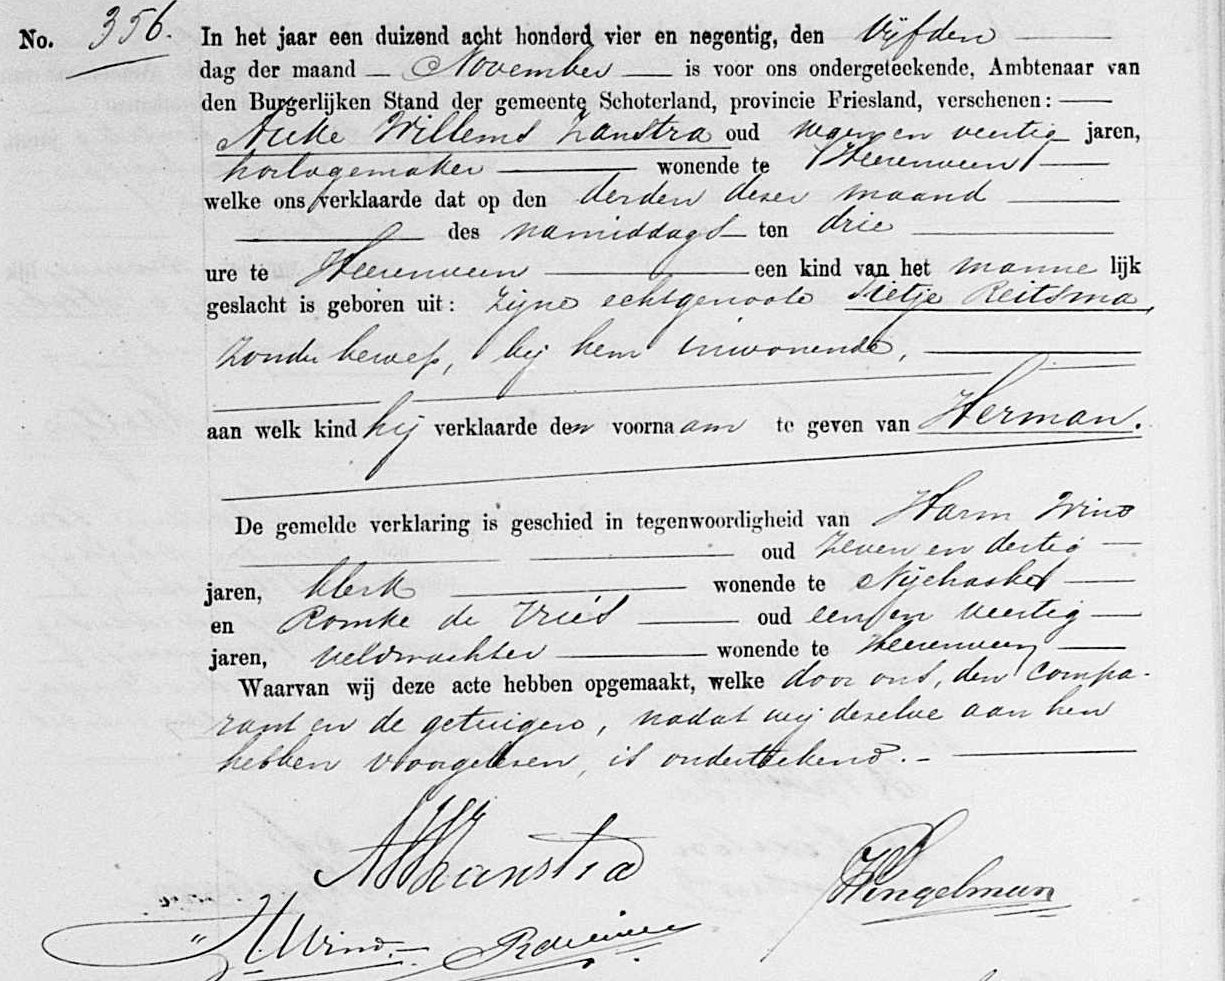 No. 356. In het jaar een duizend acht honderd vier en negentig, den Vijfden
dag der maand November is voor ons ondergeteekende, Ambtenaar van
den Burgerlijken Stand der gemeente Schoterland, provincie Friesland, verschenen:
Auke Willems Zanstra oud negen en veertig jaren,
horlogemaker wonende te Heerenveen
welke ons verklaarde dat op den derden dezer maand
des namiddags ten drie
ure te Heerenveen een kind van het manne lijk
geslacht is geboren uit: zijne echtgenoote Sietje Reitsma
zonder beroep, bij hem inwonende,
aan welk kind hij verklaarde den voornaam te geven van Herman.
De gemelde verklaring is geschied in tegenwoordigheid van Harm Wind
oud zeven en dertig
jaren, klerk wonende te Nijehaske
en Romke de Vries oud een en veertig
jaren, veldwachter wonende te Heerenveen
Waarvan wij deze acte hebben opgemaakt, welke door ons, den compa-
rant en de getuigen, nadat wij dezelve aan hen
hebben voorgelezen, is onderteekend.
AWZanstra
Hingelman
HWind. RdeVries